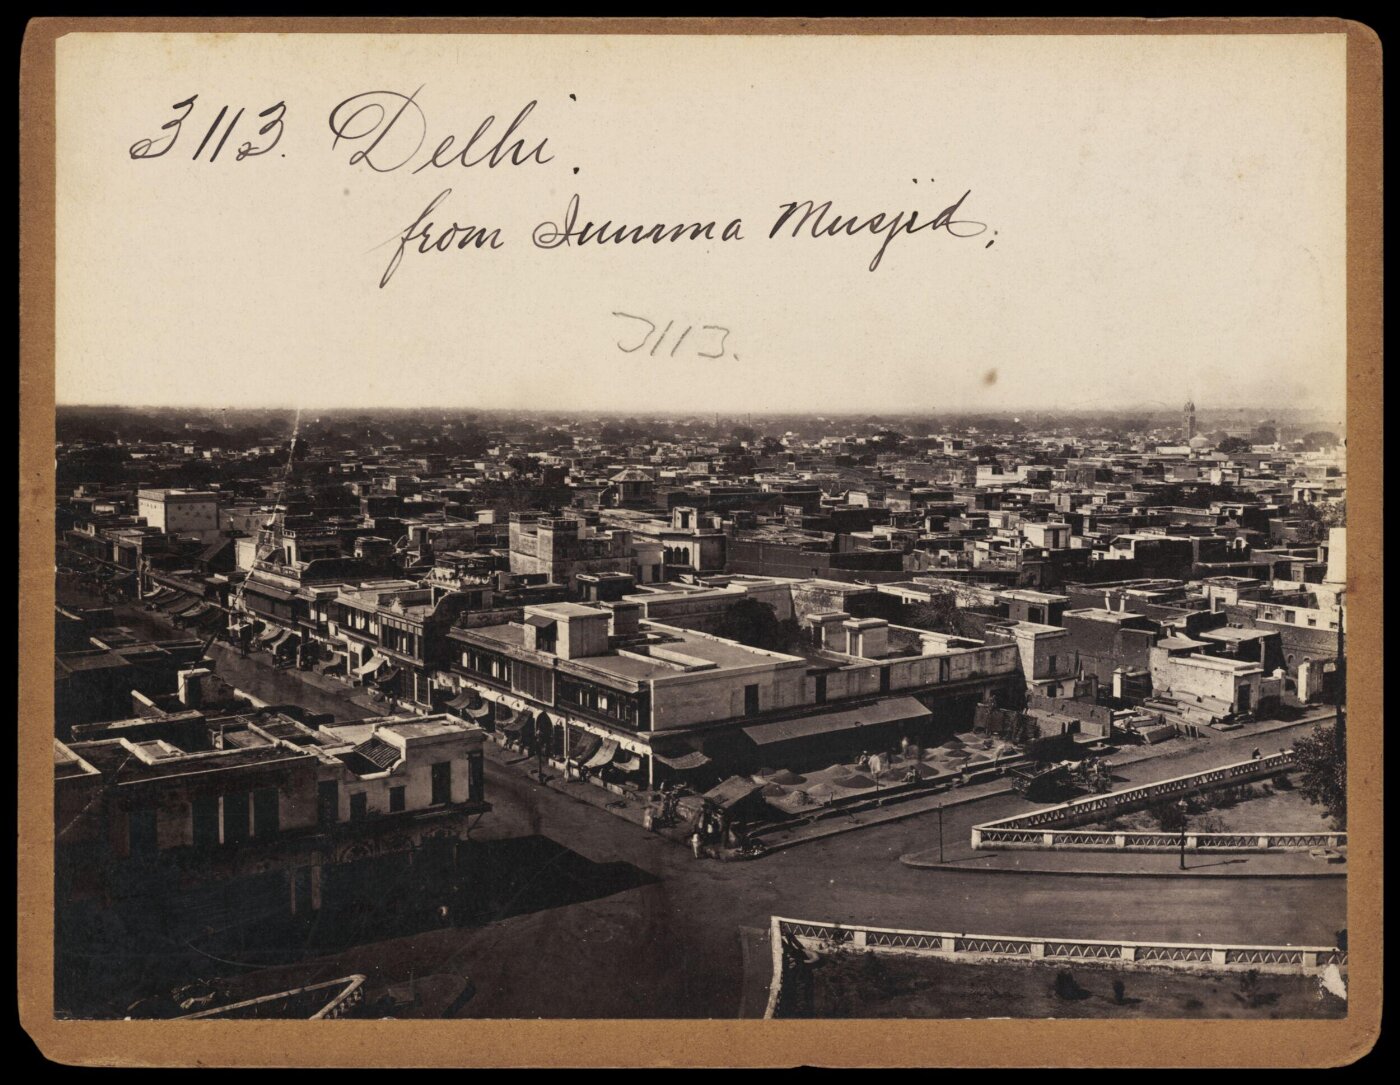 3113. Delhi.
from Jumma Musjid;
3113.